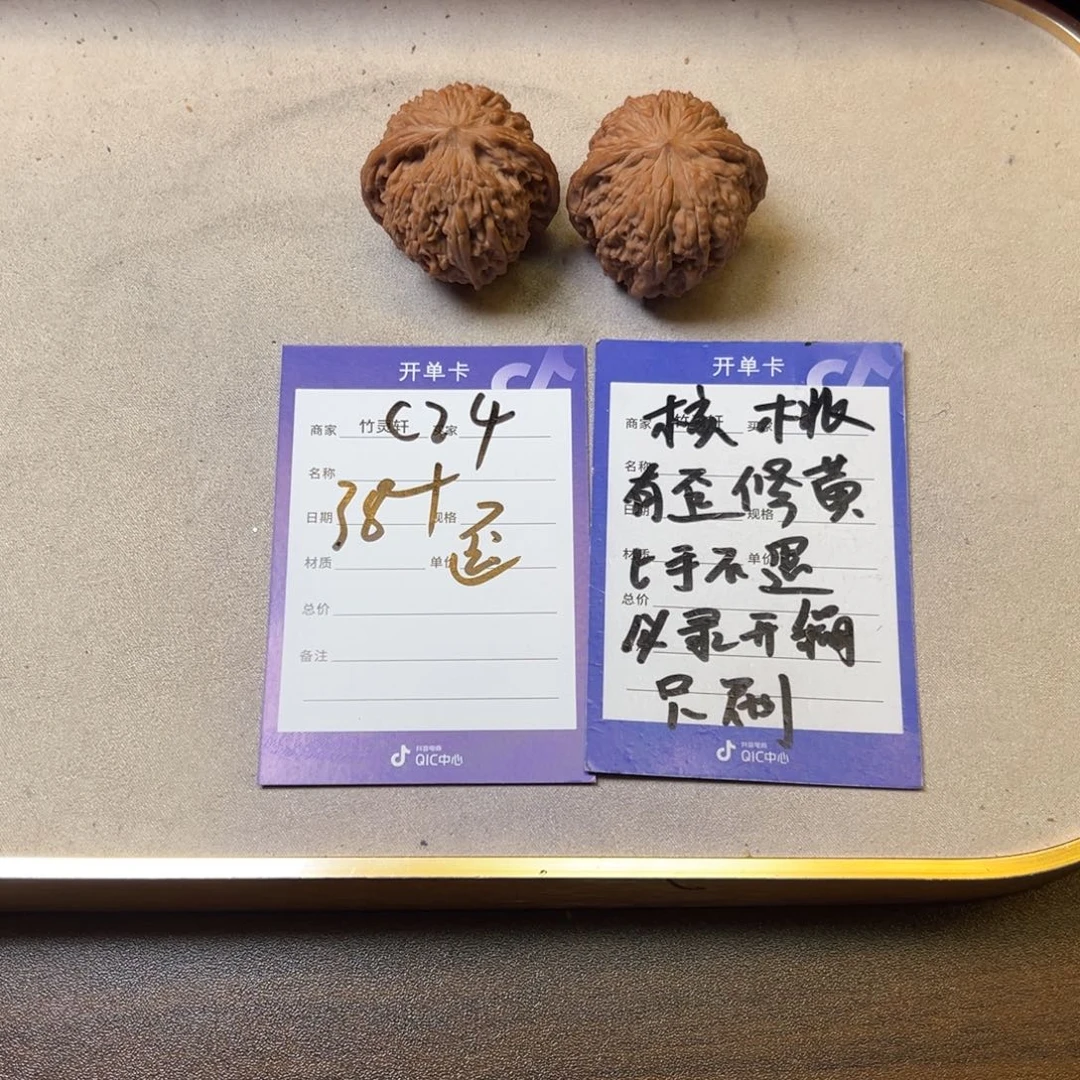 开单卡
C24
商家 竹灵轩 买家
名称
38+
日期 规格
歪
材质 单价
总价
备注
抖音电商
QIC中心
开单卡
核桃
商家 竹灵轩 买家
名称
有歪修黄
日期 规格
上手不退
材质 单价
总价
必录开辆
只刷
抖音电商
QIC中心